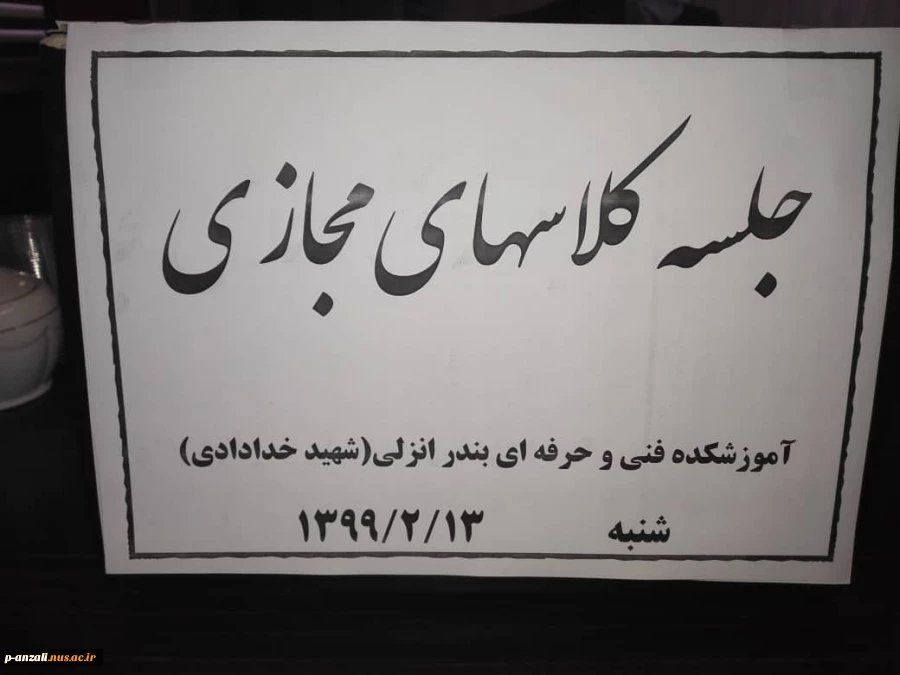 جلسه کلاسهای مجازی
آموزشکده فنی و حرفه ای بندر انزلی(شهید خدادادی)
شنبه ۱۳۹۹/۲/۱۳
p-anzali.nus.ac.ir